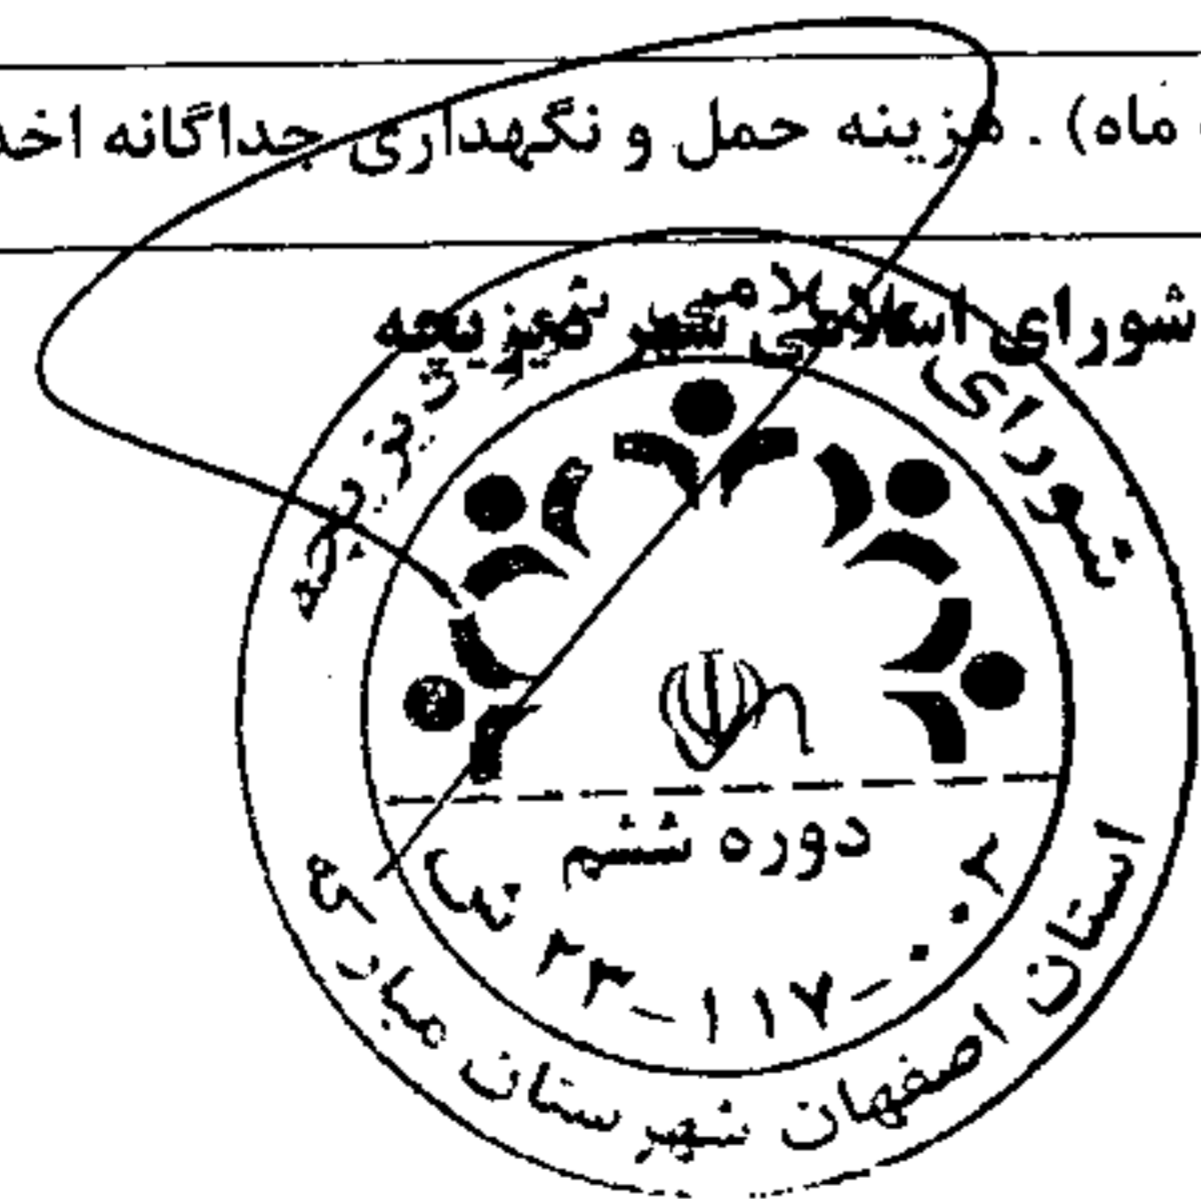 ماه) . هزینه حمل و نگهداری جداگانه اخذ
شورای اسلامی شهر طیزیچه
شورای اسلامی شهر طیزیچه
دوره ششم
۲۳-۱۱۷-۰۰۲ ش
استان اصفهان شهرستان مبارکه